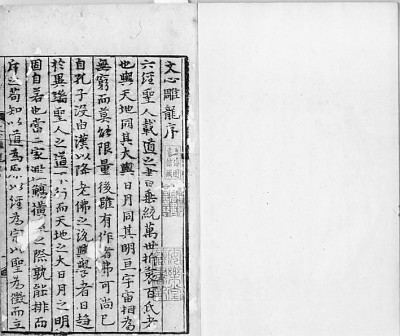 文心雕龍序
六經聖人載道之書垂統萬世折衷百氏者
也與天地同其大與日月同其明亘宇宙相為
無窮而莫能限量後雖有作者弗可尚已
自孔子沒由漢以降老佛之說興學者日趨
於異端聖人之道不行而天地之大日月之明
固自若也當二家濫觴橫流之際孰能排而
斥之苟知以道為原以經為宗以聖為徵而立